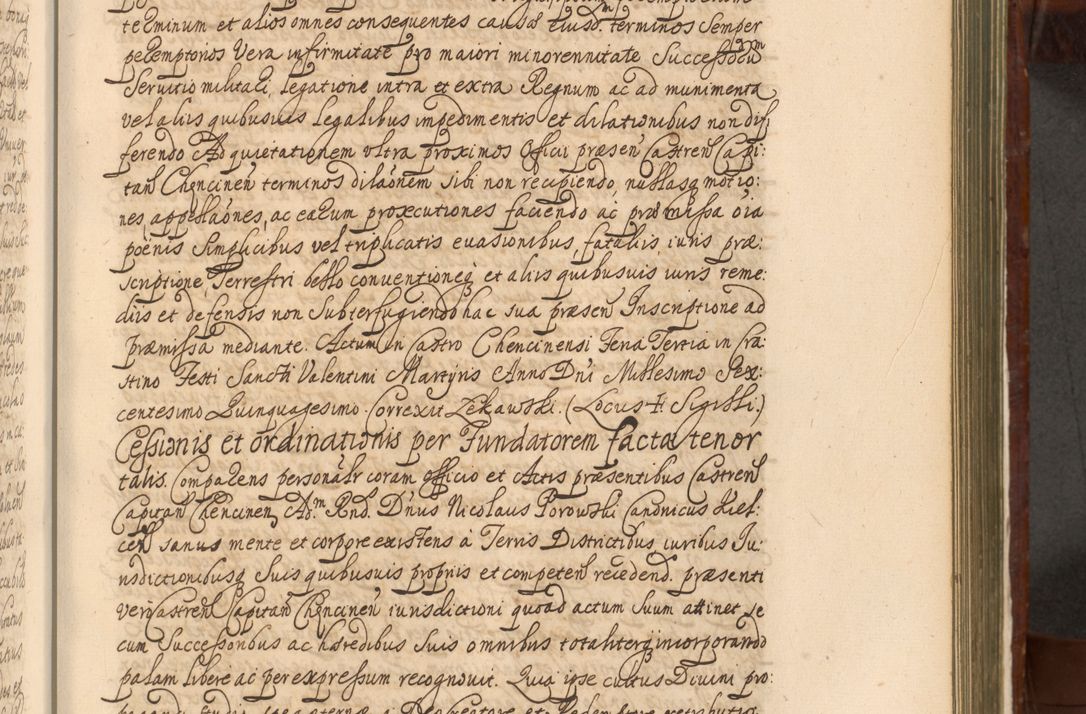 terminum et alios omnes consequentes causas eiusd. terminos semper
peremptorios Vera infirmitate pro maiori minorennitate Successorum
Servitio militari, legatione intra et extra Regnum ac ad munimenta
vel aliis quibusuis legalibus impedimentis et dilationibus non dif
ferendo Ad quietationem vltra proximos Officii præsen Castren Capi:
tan Chencinen terminos dilaonem sibi non recipiendo, nullasq motio:
nes appellaones, ac earum proxecutiones faciendo ac præmissa oia
poenis Simplicibus vel triplicatis euasionibus, fataliis iuris præ:
scriptione, Terrestri bello conuentioneq et aliis quibusuis iuris reme:
diis et defensis non Subterfugiendo hac sua præsen Inscriptione ad
præmissa mediante. Actum in Castro Chencinensi Feria Tertia in Cra:
stino Festi Sancti Valentini Martyris Anno Dni Millesimo Sex:
centesimo Quinquagesimo. Correxit Zekawski. (Locus ‡ Sigilli.)
Cessionis et ordinationis per Fundatorem facta tenor
talis. Comparens personalr coram Officio et Actis præsentibus Castren
Capitan Chencinen, Ad.m Rnd. Dnus Nicolaus Porowski Canonicus Kiel:
cen sanus mente et corpore existens à Terris Districtibus iuribus Ju:
risdictionibusq Suis quibusuis propriis et competen recedend. præsenti
vero Castren Capitan Chencinen iurisdictioni quoad actum suum attinet se
cum Successoribus ac hæredibus Suis omnibus totaliterq incorporando
palam libere ac per expressum recognouit. Quia ipse cultus Diuini pro: